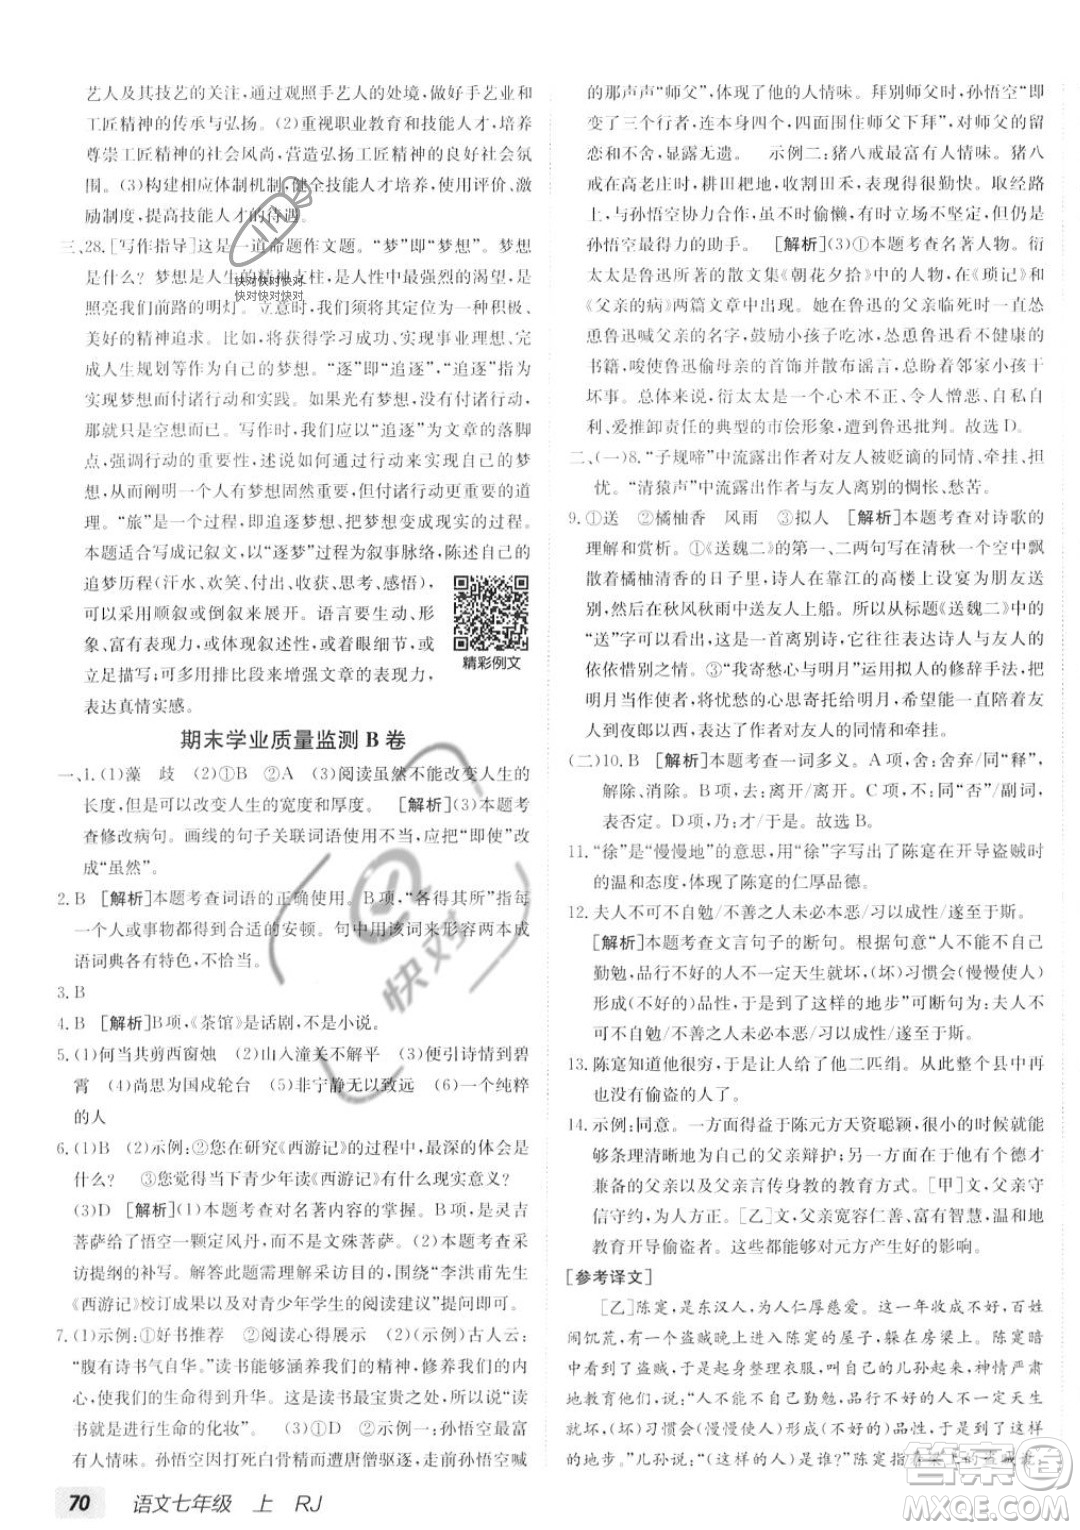 艺人及其技艺的关注，通过观照手艺人的处境，探寻
工匠精神的传承与弘扬。(2)重视职业教育和技能人才培养，
尊崇工匠精神的社会风尚，营造弘扬工匠精神的良好社会氛
围。(3)构建相应体制机制，健全技能人才培养，使用评价、激
励制度，提高技能人才的待遇。
三、28.[写作指导]这是一道命题作文题。“梦”即“梦想”。梦想
是什么？梦想是人生的精神支柱，是人性中最强烈的渴望，是
照亮我们前路的明灯。立意时，可以将其定位为一种积极、
美好的精神追求。如，将获得进步、成功、实现事业理想、完
成人生规划等称为梦想。“逐”即“追逐”，“追逐”突出了为
实现梦想而付诸行动和实践。如果光有梦想，而不付诸行动，
那就只是空想而已。写作时，我们应以“追逐”为文章的立意
点，强调行动的必要性，以及追逐过程中自己的感受与成长等，
从而阐明一个人有梦想固然重要，但付诸行动更重要的道
理。“旅”是一个过程，即追逐梦想、把梦想变成现实的过程。
本题适合写成记叙文，以“逐梦”历程为叙事脉络，陈述自己的
追梦历程(汗水、欢笑、付出、收获、思考、感悟)，
可以采用顺叙或倒叙展开。语言要力求生动形
象，富有表现力，叙事要详略得当，着眼细节，或
立足描写；可借助修辞手法增强文章的表现力，
表达真情实感。
精彩例文
期末学业质量监测 B 卷
一、1.(1)藻 歧 (2)①B ②A (3)阅读虽然不能改变人生的
长度，但可以改变人生的宽度和厚度。 [解析](3)本题考
查修改病句。画线的句子关联词语使用不当，应把“即使”改
成“虽然”。
2. B [解析]本题考查词语的正确使用。B项，“各得其所”指每一
个人或事物都得到合适的安顿。句中用该词来形容两本成
语词典各有特色，不恰当。
3. B
4. B [解析]B项，《茶馆》是话剧，不是小说。
5. (1)何当共剪西窗烛 (2)山入潼关不解平 (3)便引诗情到碧
霄 (4)尚思为国戍轮台 (5)非宁静无以致远 (6)一个纯粹
的人
6. (1)B (2)示例：②您在研究《西游记》的过程中，最深的体会是
什么？ ③您觉得当下青少年读《西游记》有什么现实意义？
(3)D [解析](1)本题考查对名著内容的掌握。B项，是灵吉
菩萨给了悟空一颗定风丹，而不是文殊菩萨。(2)本题考查采
访提纲的补写。解答此题需理解采访的目的，围绕“李洪甫先生
《西游记》校订成果以及对青少年学生的阅读建议”提问即可。
7. (1)示例：①好书推荐 ②阅读心得展示 (2)示例：古人云：
“腹有诗书气自华。”读书能够涵养我们的精神，修养我们的身
心，使我们的生命得到升华。这是读书最宝贵之处，因此说“读
书就是进行生命的化妆”。 (3)①D ②示例一：孙悟空最富
有人情味。孙悟空因打死白骨精而遭唐僧驱逐，离开时孙悟空喊
的那声声“师父”，就表现了他的人情味。拜别师父时，孙悟空“即
变了三个行者，连本身四个，四面围住师父下拜”，对师父的留
恋不舍，显露无遗。 示例二：猪八戒最富有人情味。猪八戒
在高老庄时，耕田耙地，收割田禾，表现得很勤快。取经路
上，与孙悟空协力合作，虽有时偷懒，有时意志不坚定，但仍是
孙悟空最得力的助手。 [解析](3)①本题考查名著人物。衍
太太是鲁迅所著的散文集《朝花夕拾》中的人物，在《琐记》和
《父亲的病》两篇文章中出现。她在鲁迅的父亲临死时一直怂
恿鲁迅喊父亲的名字，鼓励小孩子吃冰，怂恿鲁迅看不健康的
书籍，唆使鲁迅偷母亲的首饰并散布谣言，鼓励邻家小孩干
坏事。由此可以看出，衍太太是一个心术不正、令人憎恶、自私自利、
多嘴和推卸责任的典型的市侩形象，遭到鲁迅批判。故选D。
二、(一)8.“子规啼”中流露出作者对友人被贬谪的同情、牵挂、担
忧。“清猿声”中流露出作者与友人离别的惆怅、愁苦。
9. ①送 ②橘柚香 风雨 ③拟人 [解析]本题考查对诗歌的
理解和赏析。①《送魏二》的第一、二两句写在清秋一个空中飘
散着橘柚清香的日子里，诗人在靠江的高楼上设宴为朋友送
别，在秋风秋雨中送友人上船。所以从标题《送魏二》中的
“送”字可以看出，这是一首离别诗，它往往表达诗人与友人的
依依惜别之情。③“我寄愁心与明月”运用拟人的修辞手法，把
明月当作使者，将忧愁的心思寄托给明月，希望能一直陪着友人
到夜郎以西，表达了作者对友人的同情和牵挂。
(二)10. B [解析]本题考查一词多义。A项，舍：舍弃/同“释”，
解除、消除。B项，去：离开/离开。C项，不：同“否”/副词，
表否定。D项，乃：于是，就/是。故选B。
11. “徐”是“慢慢地”的意思，用“徐”字写出了陈寔在开导盗贼时
的温和态度，体现了陈寔的仁厚品德。
12. 夫人不可不自勉/不善之人未必本恶/习以成性/遂至于斯。
[解析]本题考查文言句子的断句。根据句意“人不能不自己
勤勉，不善良的人不一定天生就坏，(坏)习惯会(慢慢使人)
形成(不好的)品性，于是到了这样的地步”可断句为：夫人不
可不自勉/不善之人未必本恶/习以成性/遂至于斯。
13. 陈寔知道他很穷，于是送给了他二匹绢。从此整个县中再
也没有偷盗的人了。
14. 示例：同意。一方面得益于陈元方天资聪颖，很小的时候就能
条理清晰地为自己的父亲辩护；另一方面得益于他有个德才
兼备的父亲以及父亲言传身教的教育方式。[甲]文，父亲诚实
守信守约，为人方正，[乙]文，父亲宽容仁善、富有智慧，温和地
教育开导偷盗者。这些都能够对元方产生好的影响。
[参考译文]
[乙]陈寔，是东汉人，为人仁厚慈爱。这一年收成不好，百姓
闹饥荒，有一个盗贼晚上进入陈寔的屋子，躲在房梁上。陈寔暗
中看到了盗贼，于是起身整理衣服，叫自己的儿孙起来，神情严肃
地教育他们，说：“人不能不自己勤勉，品行不好的人不一定天生
就坏，(坏)习惯会(慢慢使人)形成(不好的)品性，于是到了这样
的地步。”儿孙说：“
70 语文七年级 上 RJ
快对快对快对
快对快对快对
快对
答案圈
MXQE.COM